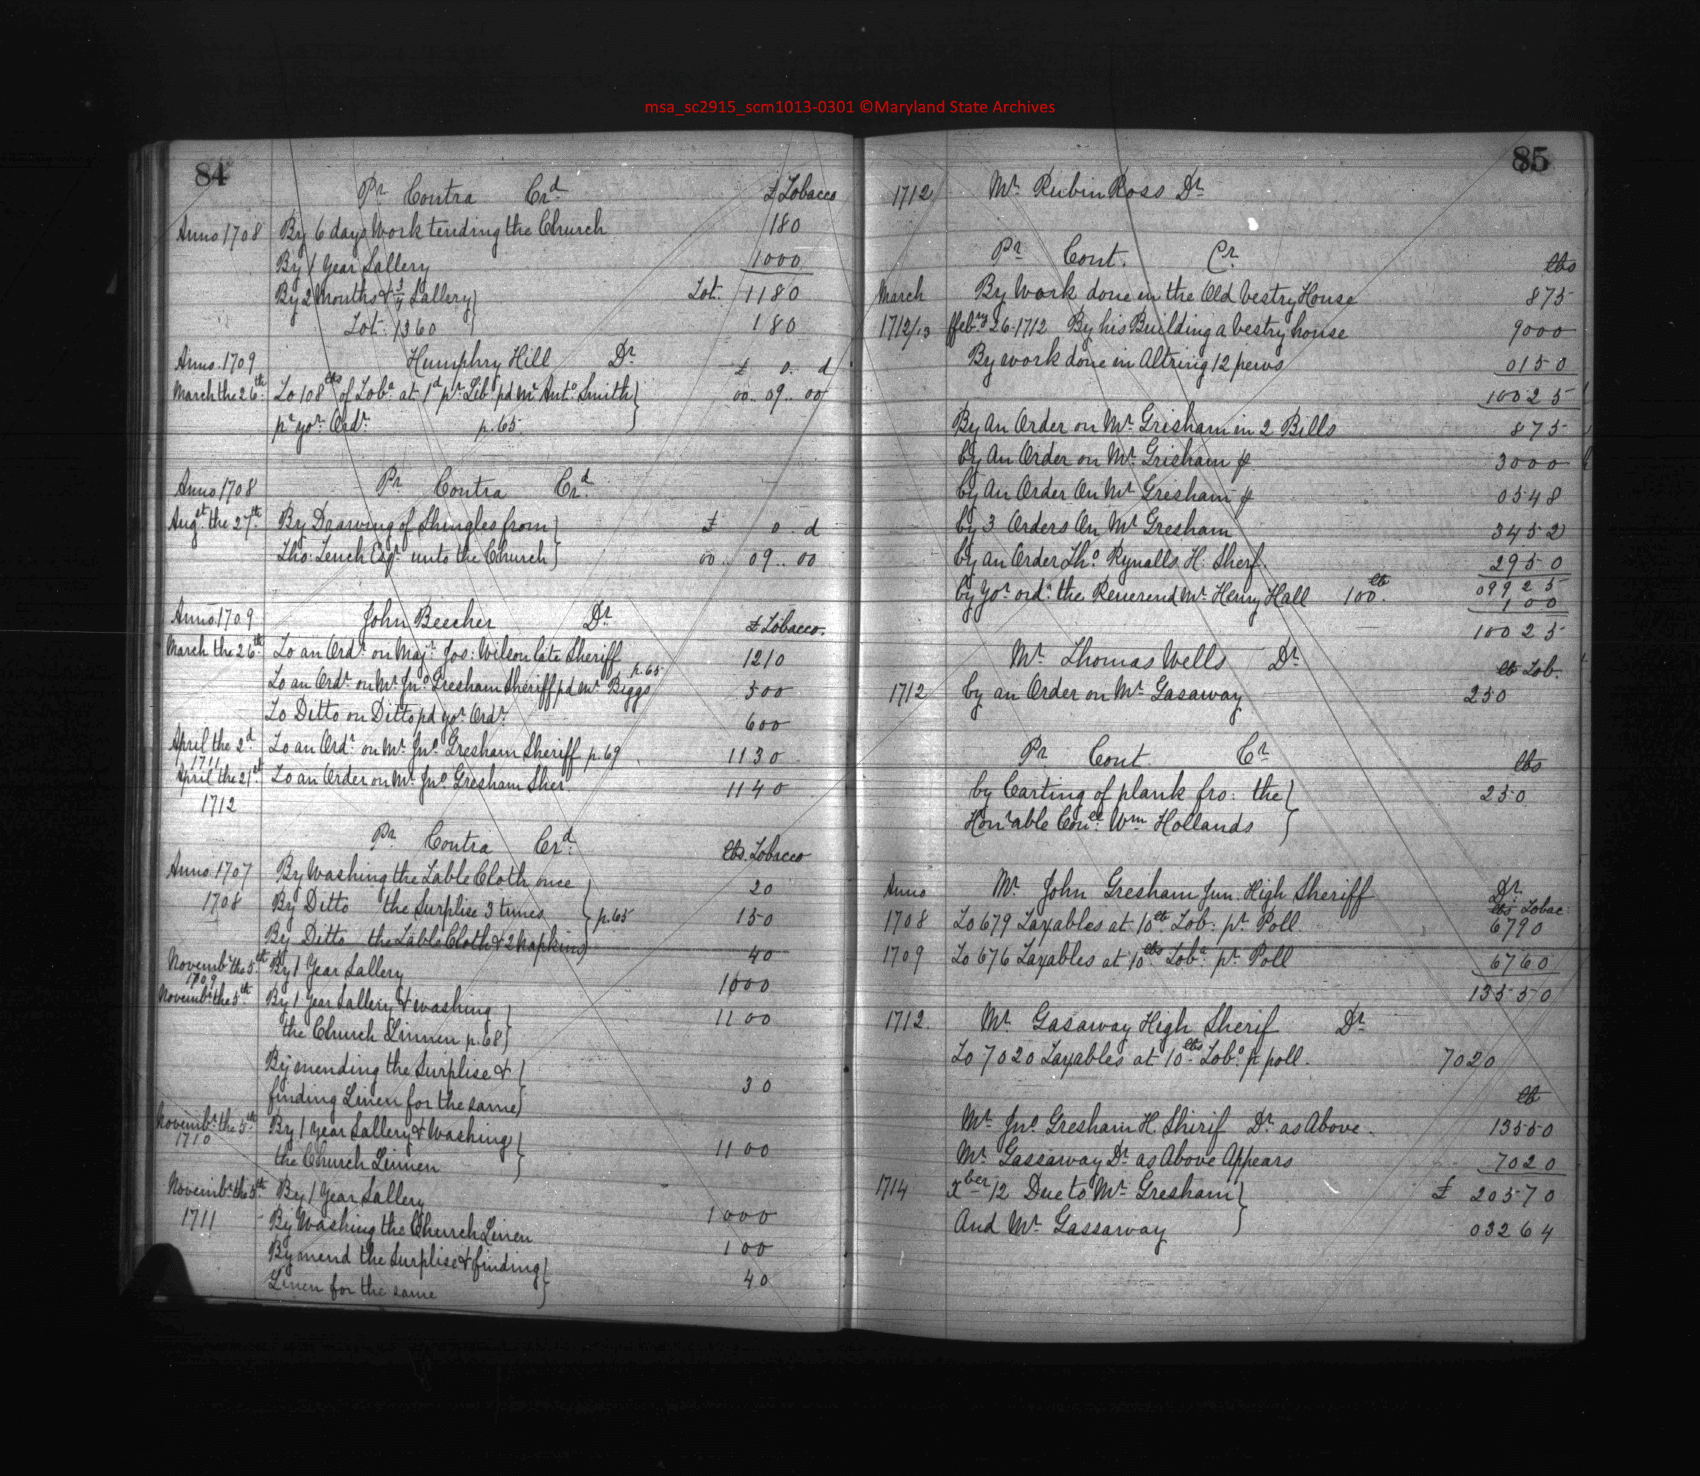 msa_sc2915_scm1013-0301 ©Maryland State Archives
84
Pr Contra Crd
£ Tobacco
Anno 1708 By 6 days Work tending the Church 180
By 1 Year Sallery 1000
By 2 Months & 3/4 Sallery} Tot. 1180
Tot. 1360 180
Anno. 1709 Humphry Hill Dr £ o. d
March the 26th To 108 lbs of Tobo at 1d pr Leb pd Mr Anto Smith} 00.. 09.. 00
pr yor Ordr p. 65
Anno 1708 Pr Contra Crd.
Augst the 27th By Drawing of Shingles from} £ o. d
Tho: Tench Esqr unto the Church} 00.. 09.. 00
Anno 1709 John Beecher Dr £ Tobacco.
March the 26th To an Ordr on Majr Jos: Wilson late Sheriff p. 65 1210
To an Ordr on Mr Jno Gresham Sheriff pd Mr Biggs 500
To Ditto on Ditto pd yor Ordr 600
April the 2d 1711 To an Ordr on Mr Jno Gresham Sheriff p. 69 1130
April the 21st To an Order on Mr Jno Gresham Sher 1140
1712
Pr Contra Crd lbs. Tobacco
Anno 1707 By Washing the Table Cloth once} 20
1708 By Ditto the Surplise 3 times} p. 65 150
By Ditto the Table Cloth & 2 Napkins} 40
Novembr the 5th 1709 By 1 Year Sallery 1000
Novembr the 5th By 1 Year Sallery & washing} 1100
the Church Linnen p. 68}
By mending the Surplise &} 30
finding Linen for the same}
Novembr the 5th 1710 By 1 year Sallery & Washing} 1100
the Church Linnen}
Novembr the 5th By 1 Year Sallery 1000
1711 - By Washing the Church Linen 100
By mend the Surplise & finding} 40
Linen for the same}
85
1712 Mr Rubin Ross Dr
Pr Cont. Cr. lbs
March By Work done in the Old Vestry House 875
1712/13 ffebry 26-1712 By his Building a Vestry house 9000
By work done in Altring 12 pews 0150
10025
By An Order on Mr Grisham in 2 Bills 875
by An Order on Mr Grisham p 3000
by An Order On Mr Gresham p 0548
by 3 Orders On Mr Gresham 3452
by an Order Tho Rynalls H. Sherf. 2950
09925
by yor ordr the Reverend Mr Henry Hall 100 lb. 100
10025
Mr Thomas Wells Dr lb Tob.
1712 by an Order on Mr Gasaway 250
Pr Cont. Cr lbs
by Carting of plank fro: the} 250
Honrable Conell Wm Hollands}
Anno Mr John Gresham Jun. High Sheriff Dr
lbs Tobac:
1708 To 679 Taxables at 10 lb Tob: pr Poll. 6790
1709 To 676 Taxables at 10 lbs Tobo pr Poll 6760
13550
1712. Mr Gasaway High Sherif Dr
To 7020 Taxables at 10 lbs Tobo p poll. 7020
lb
Mr Jno Gresham H. Shirif Dr as Above. 13550
Mr Gassaway Dr as Above Appears 7020
1714 Xber 12 Due to Mr Gresham} £ 20570
And Mr Gassaway} 03264